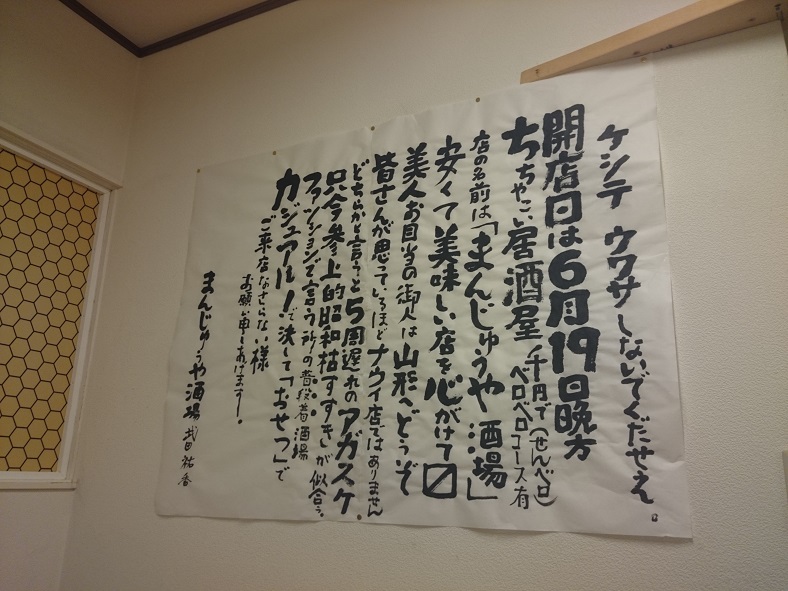 ケシテ ウワサしないでくだせえ。
開店日は6月19日晩方
ちちゃこい居酒屋 千円で(せんベロ)
ベロベロコース有
店の名前は「まんじゅうや酒場」
安くて美味しい店を心がけて〼
美人お目当の御人は山形へどうぞ
皆さんが思っているほどナウイ店ではありません
どちらかと言うと5周遅れのアガスケ。
只今参上的昭和枯すすきが似合う。
ファッションで言う所の普段着酒場
カジュアル!で決して「おせつ」で
ご来店なさらない様
お願い申しあげます!
まんじゅうや酒場 武田祐香